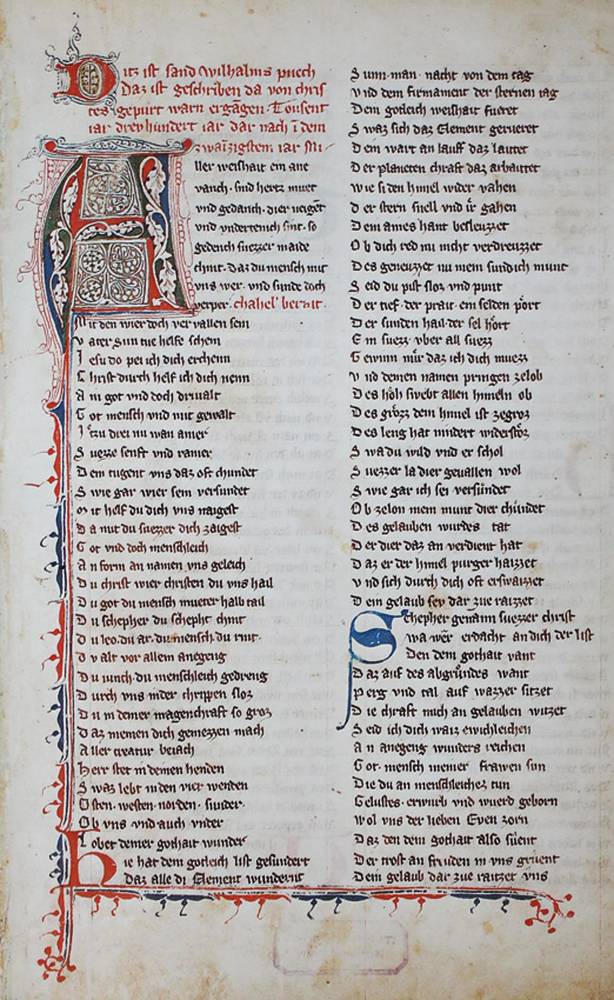 Ditz ist sand wilhalms puech
Daz ist geschriben da von chris
tes gepurt warn ergangen Tousent
iar drevhundert iar dar nach i dem
zwaizigistem iar sti
Aller weishait ein ane
vanch · sind hertz muet
vnd gedanch · dier neiget
vnd vndertenich sint · so
gedench suezzer maide
chint · daz du mensch mit
vns wer · vnd sunde doch
verper · chahel' berait ·
Mit den wier doch ver vallen sein
Vater Sun tue helfe schein
Iesu do pei ich dich erchenn
Christ durch helf ich dich nenn
Ain got vnd doch driualt
Got mensch vnd mit gewalt
I zu drei nu wan ainer
Suezze senft vnd rainer
Dein tugent vns daz oft chundet
Swie gar wier sein versundet
Mit helf du dich vns naigest
Da mit du suezzer dich zaigest
Got vnd doch menschleich
An form an namen vns geleich
Du christ wier christen du vns hail
Du got du mensch mueter halb tail
Du schepher du schepht chint
Du leo · du ar · du mensch · du rint ·
Dv alt vor allem anegeng
Du iunch · du menschleich gedreng
Durch vns inder chrippen sloz
Du in deiner magenchraft so groz
Daz niemen dich gemezzen mach
Aller creatur beiach
Herr stet in deinen henden
Swaz lebt in den vier wenden
Osten · westen · norden · sunder ·
Ob vns vnd auch vnder
Lobet deiner gothait wunder
Hie hat dein gotleich list gesundert
Daz alle di Element wundernt
Sunn · man · nacht von dem tag
Vnd dem firmament der sternen tag
Dein gotleich weishait fueret
Swaz sich daz Element gerueret
Dein wart an lauff daz lautet
Der planeten chraft daz arbaittet
Wie si den himel wider vahen
Der stern snell vnd ir gahen
Dein ains hant besleuzzet
Ob dich red mi nicht verdreuzzet
Des geneuzzet nu mein sundich munt
Seid du pist sloz vnd punt
Der tief · der prait · ein selden port
Der sunden hail · der sel hort
Ein suezz vber all suezz
Gewinn mir daz ich dich muezz
Vnd deinen namen pringen zelob
Des hoh swebt allen himeln ob
Des grozz dem himel ist zegroz
Des leng hat nindert widerstoz
Swa du wild vnd er schol
Suezzer la dier geuallen wol
Swie gar ich sei versundet
Ob zelon mein munt dier chundet
Des gelauben wurdes tat
Der dier daz an verdient hat
Daz er der himel purger haizzet
Vnd sich durch dich oft erswaizzet
Dein gelaub sey dar zue raizzet
Schepher genann suezzer christ
Swa wer erdacht an dich der list
Den dein gothait vant
Daz auf des abgrundes want
Perg vnd tal auf wazzer sitzet
Die chraft mich an gelauben witzet
Seid ich dich waiz ewichleichen
An anegeng wunders reichen
Got · mensch meiner frawen sun
Die du an menschleichez tun
Gelustes · erwurb vnd wuerd geborn
Wol vns der lieben Even zorn
Daz den dein gothait also suent
Der trost an freuden in vns gruent
Dein gelaub dar zue raitzet vns